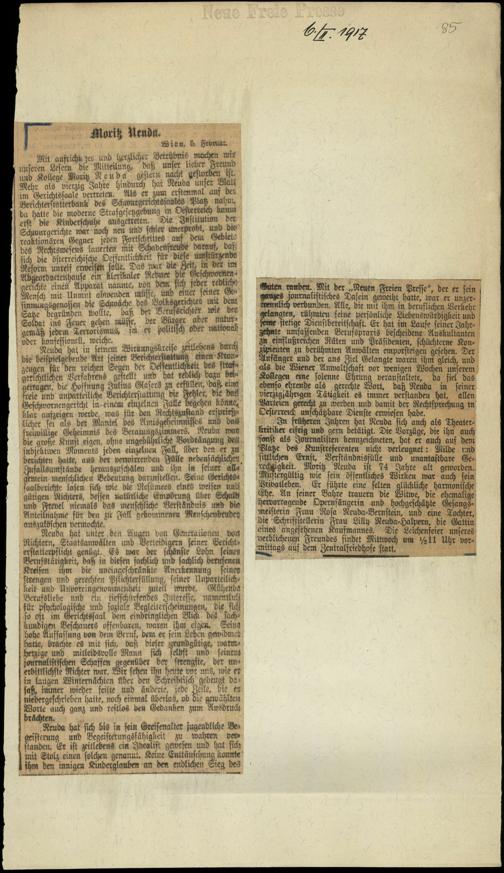 Neue Freie Presse
6/II. 1917
85
Moritz Neuda.
Wien, 5. Februar.
Mit aufrichtiger und herzlicher Betrübnis machen wir
unseren Lesern die Mitteilung, daß unser lieber Freund
und Kollege Moritz Neuda gestern nacht gestorben ist.
Mehr als vierzig Jahre hindurch hat Neuda unser Blatt
im Gerichtssaale vertreten. Als er zum erstenmal auf der
Berichterstatterbank des Schwurgerichtssaales Platz nahm,
da hatte die moderne Strafgesetzgebung in Oesterreich kaum
erst die Kinderschuhe ausgetreten. Die Institution der
Schwurgerichte war noch neu und schier unerprobt, und die
reaktionären Gegner jeden Fortschrittes auf dem Gebiete
des Rechtswesens lauerten mit Schadenfreude darauf, daß
sich die österreichische Oeffentlichkeit für diese umstürzende
Reform unreif erweisen solle. Das war die Zeit, in der im
Abgeordnetenhause ein klerikaler Redner die Geschwornen-
gerichte einen Apparat nannte, von dem sich jeder redliche
Mensch mit Unmut abwenden müsse, und einer seiner Ge-
sinnungsgenossen die Schwäche des Volksgerichtes mit dem
Satze begründen wollte, daß der Berufsrichter wie der
Soldat ins Feuer gehen müsse, der Bürger aber natur-
gemäß jedem Terrorismus, sei er politisch oder national
oder konfessionell, weiche.
Neuda hat in seinem Wirkungskreise zeitlebens durch
die beispielgebende Art seiner Berichterstattung einen Kron-
zeugen für den reichen Segen der Oeffentlichkeit des straf-
gerichtlichen Verfahrens gestellt und hat redlich dazu bei-
getragen, die Hoffnung Julius Glasers zu erfüllen, daß eine
freie und unparteiliche Berichterstattung die Fehler, die das
Geschwornengericht in einem einzelnen Falle begehen könne,
klar aufzeigen werde, was für den Rechtszustand ersprieß-
licher sei als der Mantel des Amtsgeheimnisses und das
freiwillige Geheimnis des Beratungszimmers. Neuda war
die große Kunst eigen, ohne ungebührliche Vordrängung des
subjektiven Moments jeden einzelnen Fall, über den er zu
berichten hatte, aus der verwirrenden Fülle nebensächlicher
Zufallsumstände herauszuschälen und ihn in seiner all-
gemein menschlichen Bedeutung darzustellen. Seine Gerichts-
saalberichte lesen sich wie die Resümees eines weisen und
gütigen Richters, dessen natürliche Empörung über Schuld
und Frevel niemals das menschliche Verständnis und die
Anteilnahme für den zu Fall gekommenen Menschenbruder
auszulöschen vermochte.
Neuda hat unter den Augen von Generationen von
Richtern, Staatsanwälten und Verteidigern seiner Bericht-
erstatterpflicht genügt. Es war der schönste Lohn seiner
Berufstätigkeit, daß in diesen fachlich und sachlich berufenen
Kreisen ihm die uneingeschränkte Anerkennung seiner
strengen und gerechten Pflichterfüllung, seiner Unparteilich-
keit und Unvoreingenommenheit zuteil wurde. Glühende
Berufsliebe und ein tiefschürfendes Interesse, namentlich
für psychologische und soziale Begleiterscheinungen, die sich
so oft im Gerichtssaal dem eindringlichen Blick des sach-
kundigen Beschauers offenbaren, waren ihm eigen. Seine
hohe Auffassung von dem Beruf, dem er sein Leben gewidmet
hatte, brachte es mit sich, daß dieser grundgütige, warm-
herzige und mitleidsvolle Mann sich selbst und seinem
journalistischen Schaffen gegenüber der strengste, der un-
erbittlichste Richter war. Wir sehen ihn heute vor uns, wie er
in langen Winternächten über den Schreibtisch gebeugt da-
saß, immer wieder feilte und änderte, jede Zeile, die er
niedergeschrieben hatte, noch einmal überlas, ob die gewählten
Worte auch ganz und restlos den Gedanken zum Ausdruck
brächten.
Neuda hat sich bis in sein Greisenalter jugendliche Be-
geisterung und Begeisterungsfähigkeit zu wahren ver-
standen. Er ist zeitlebens ein Idealist gewesen und hat sich
mit Stolz einen solchen genannt. Keine Enttäuschung konnte
ihm den innigen Kinderglauben an den endlichen Sieg des
Guten rauben. Mit der „Neuen Freien Presse“, der er sein
ganzes journalistisches Dasein geweiht hatte, war er unzer-
trennlich verbunden. Alle, die mit ihm in beruflichen Verkehr
gelangten, rühmten seine persönliche Liebenswürdigkeit und
seine stetige Dienstbereitschaft. Er hat im Laufe seiner Jahr-
zehnte umfassenden Berufspraxis bescheidene Auskultanten
zu einflußreichen Räten und Präsidenten, schüchterne Kon-
zipienten zu berühmten Anwälten emporsteigen gesehen. Der
Anfänger und der ans Ziel Gelangte waren ihm gleich, und
als die Wiener Anwaltschaft vor wenigen Wochen unserem
Kollegen eine solenne Ehrung veranstaltete, da fiel das
ebenso ehrende als gerechte Wort, daß Neuda in seiner
vierzigjährigen Tätigkeit es immer verstanden hat, allen
Parteien gerecht zu werden und damit der Rechtsprechung in
Oesterreich unschätzbare Dienste erwiesen habe.
In früheren Jahren hat Neuda sich auch als Theater-
kritiker eifrig und gern betätigt. Die Vorzüge, die ihn auch
sonst als Journalisten kennzeichneten, hat er auch auf dem
Platze des Kunstreferenten nicht verleugnet: Milde und
sittlichen Ernst, Verständnisfülle und unantastbare Ge-
rechtigkeit. Moritz Neuda ist 74 Jahre alt geworden.
Mustergültig wie sein öffentliches Wirken war auch sein
Privatleben. Er führte eine selten glückliche harmonische
Ehe. An seiner Bahre trauern die Witwe, die ehemalige
hervorragende Opernsängerin und hochgeschätzte Gesangs-
meisterin Frau Rosa Neuda-Bernstein, und eine Tochter,
die Schriftstellerin Frau Lilly Neuda-Halpern, die Gattin
eines angesehenen Kaufmannes. Die Leichenfeier unseres
verblichenen Freundes findet Mittwoch um ½11 Uhr vor-
mittags auf dem Zentralfriedhofe statt.